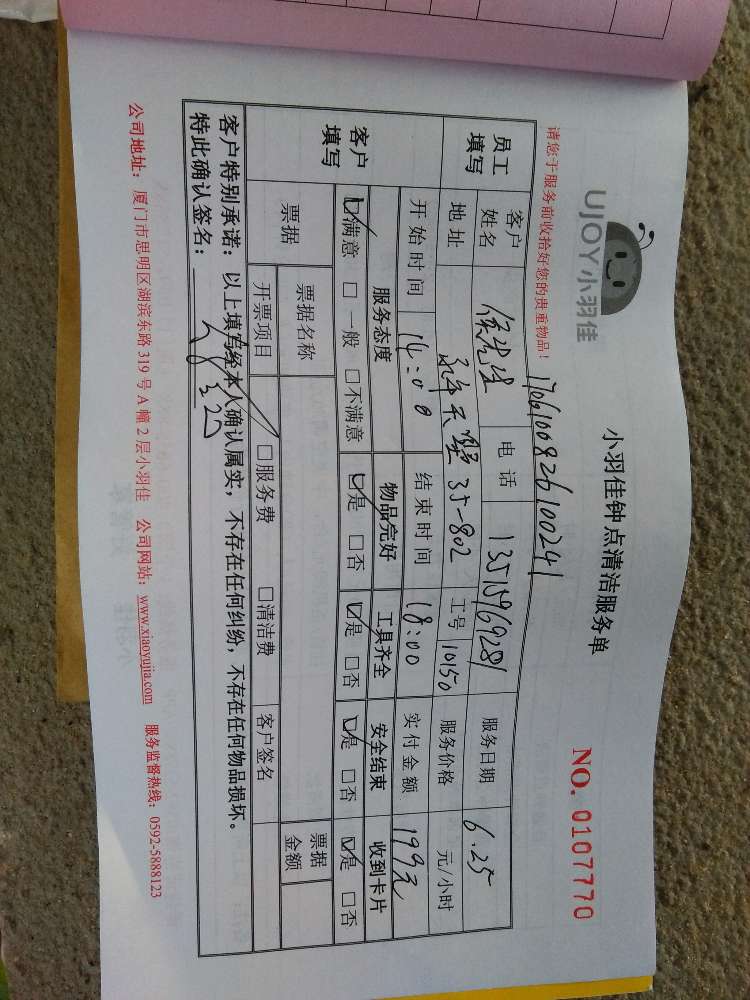 UJOY小羽佳
小羽佳钟点清洁服务单
NO. 0107770
请您于服务前收拾好您的贵重物品！
1706100826100241
员工填写 客户姓名 侯先生 电话 13515969281 服务日期 6.25
地址 天墅 35-802 工号 10150 服务价格 元/小时
开始时间 14:00 结束时间 18:00 实付金额 199元
客户填写 服务态度 物品完好 工具齐全 安全结束 收到卡片
☑满意 □一般 □不满意 ☑是 □否 ☑是 □否 ☑是 □否 ☑是 □否
票据 票据名称 客户签名 票据金额
开票项目 □服务费 □清洁费
客户特别承诺：以上填写经本人确认属实，不存在任何纠纷，不存在任何物品损坏。
特此确认签名：
公司地址：厦门市思明区湖滨东路319号A幢2层小羽佳 公司网站：www.xiaoyujia.com 服务监督热线：0592-5888123